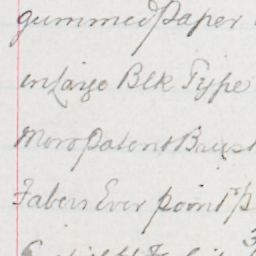 gummed Paper
in Large Blk Type
More Patent Brush
Fabers Ever point